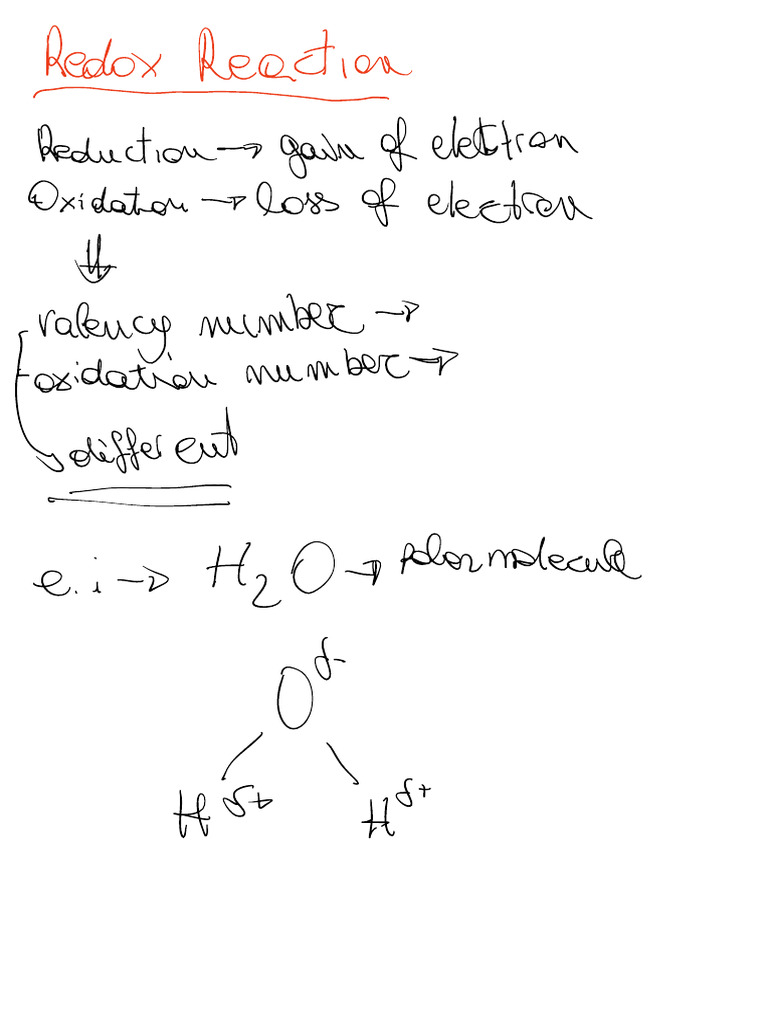 Redox Reaction
Reduction → gain of electron
Oxidation → loss of electron
⇓
valency number →
oxidation number →
different
e.i → H₂O → polar molecule
O δ-
H δ+ H δ+